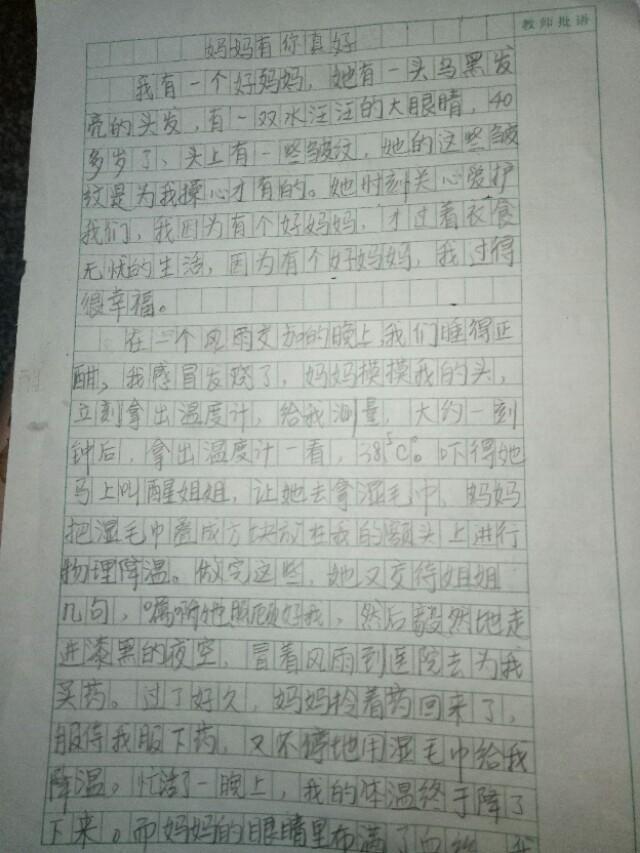 教师批语
妈妈有你真好
我有一个好妈妈，她有一头乌黑发
亮的头发，有一双水汪汪的大眼睛，40
多岁了、头上有一些皱纹，她的这些皱
纹是为我操心才有的。她时刻关心爱护
我们，我因为有个好妈妈，才过着衣食
无忧的生活，因为有个好妈妈，我过得
很幸福。
在一个风雨交加的晚上，我们睡得正
酣，我感冒发烧了，妈妈摸摸我的头，
立刻拿出温度计，给我测量，大约一刻
钟后，拿出温度计一看，38.5℃。吓得她
马上叫醒姐姐，让她去拿湿毛巾，妈妈
把湿毛巾叠成方块放在我的额头上进行
物理降温。做完这些，她又交待姐姐
几句，嘱咐她照顾好我，然后毅然地走
进漆黑的夜空，冒着风雨到医院去为我
买药。过了好久，妈妈拎着药回来了，
服侍我服下药，又不停地用湿毛巾给我
降温。忙活了一晚上，我的体温终于降了
下来。而妈妈的眼睛里布满了血丝，我